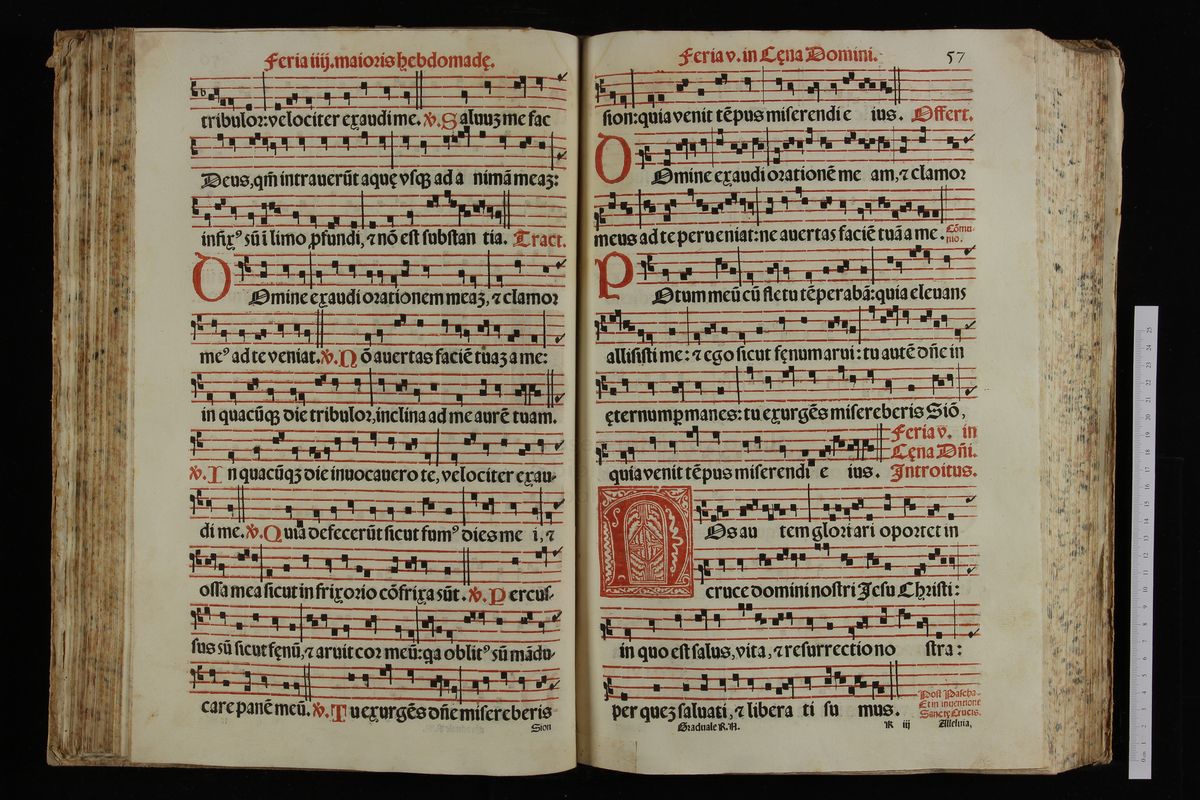 Feria iiij. maioris hebdomadę.
tribulor: velociter exaudi me. ℣. Saluuꝫ me fac
Deus, qm̃ intrauerũt aquę vsqꝫ ad a nimã meaꝫ:
infixꝰ sũ i limo ꝓfundi, ⁊ nõ est substan tia. Tract.
DOmine exaudi orationem meaꝫ, ⁊ clamor
meꝰ ad te veniat. ℣. Nõ auertas faciẽ tuaꝫ a me:
in quacũqꝫ die tribulor, inclina ad me aurẽ tuam.
℣. In quacũqꝫ die inuocauero te, velociter exau-
di me. ℣. Quia defecerũt sicut fumꝰ dies me i, ⁊
ossa mea sicut in frixorio cõfrixa sũt. ℣. Percus-
sus sũ sicut fęnũ, ⁊ aruit cor meũ: qa oblitꝰ sũ mãdu-
care panẽ meũ. ℣. Tu exurgẽs dñe misereberis
Sion
Feria v. in Cęna Domini.
57
sion: quia venit tẽpus miserendi e ius. Offert.
DOmine exaudi orationẽ me am, ⁊ clamor
meus ad te perueniat: ne auertas faciẽ tuã a me. Cõmu-
nio.
POtum meũ cũ fletu tẽperabã: quia eleuans
allisisti me: ⁊ ego sicut fęnum arui: tu autẽ dñe in
ęternum ꝑmanes: tu exurgẽs misereberis Siõ,
quia venit tẽpus miserendi e ius. Feria v. in
Cęna Dñi.
Introitus.
NOs au tem gloriari oportet in
cruce domini nostri Jesu Christi:
in quo est salus, vita, ⁊ resurrectio no stra:
per queꝫ saluati, ⁊ libera ti su mus.
Post Pascha.
Et in inuentione
Sanctę Crucis.
Graduale R.A.
R iij
Alleluia,